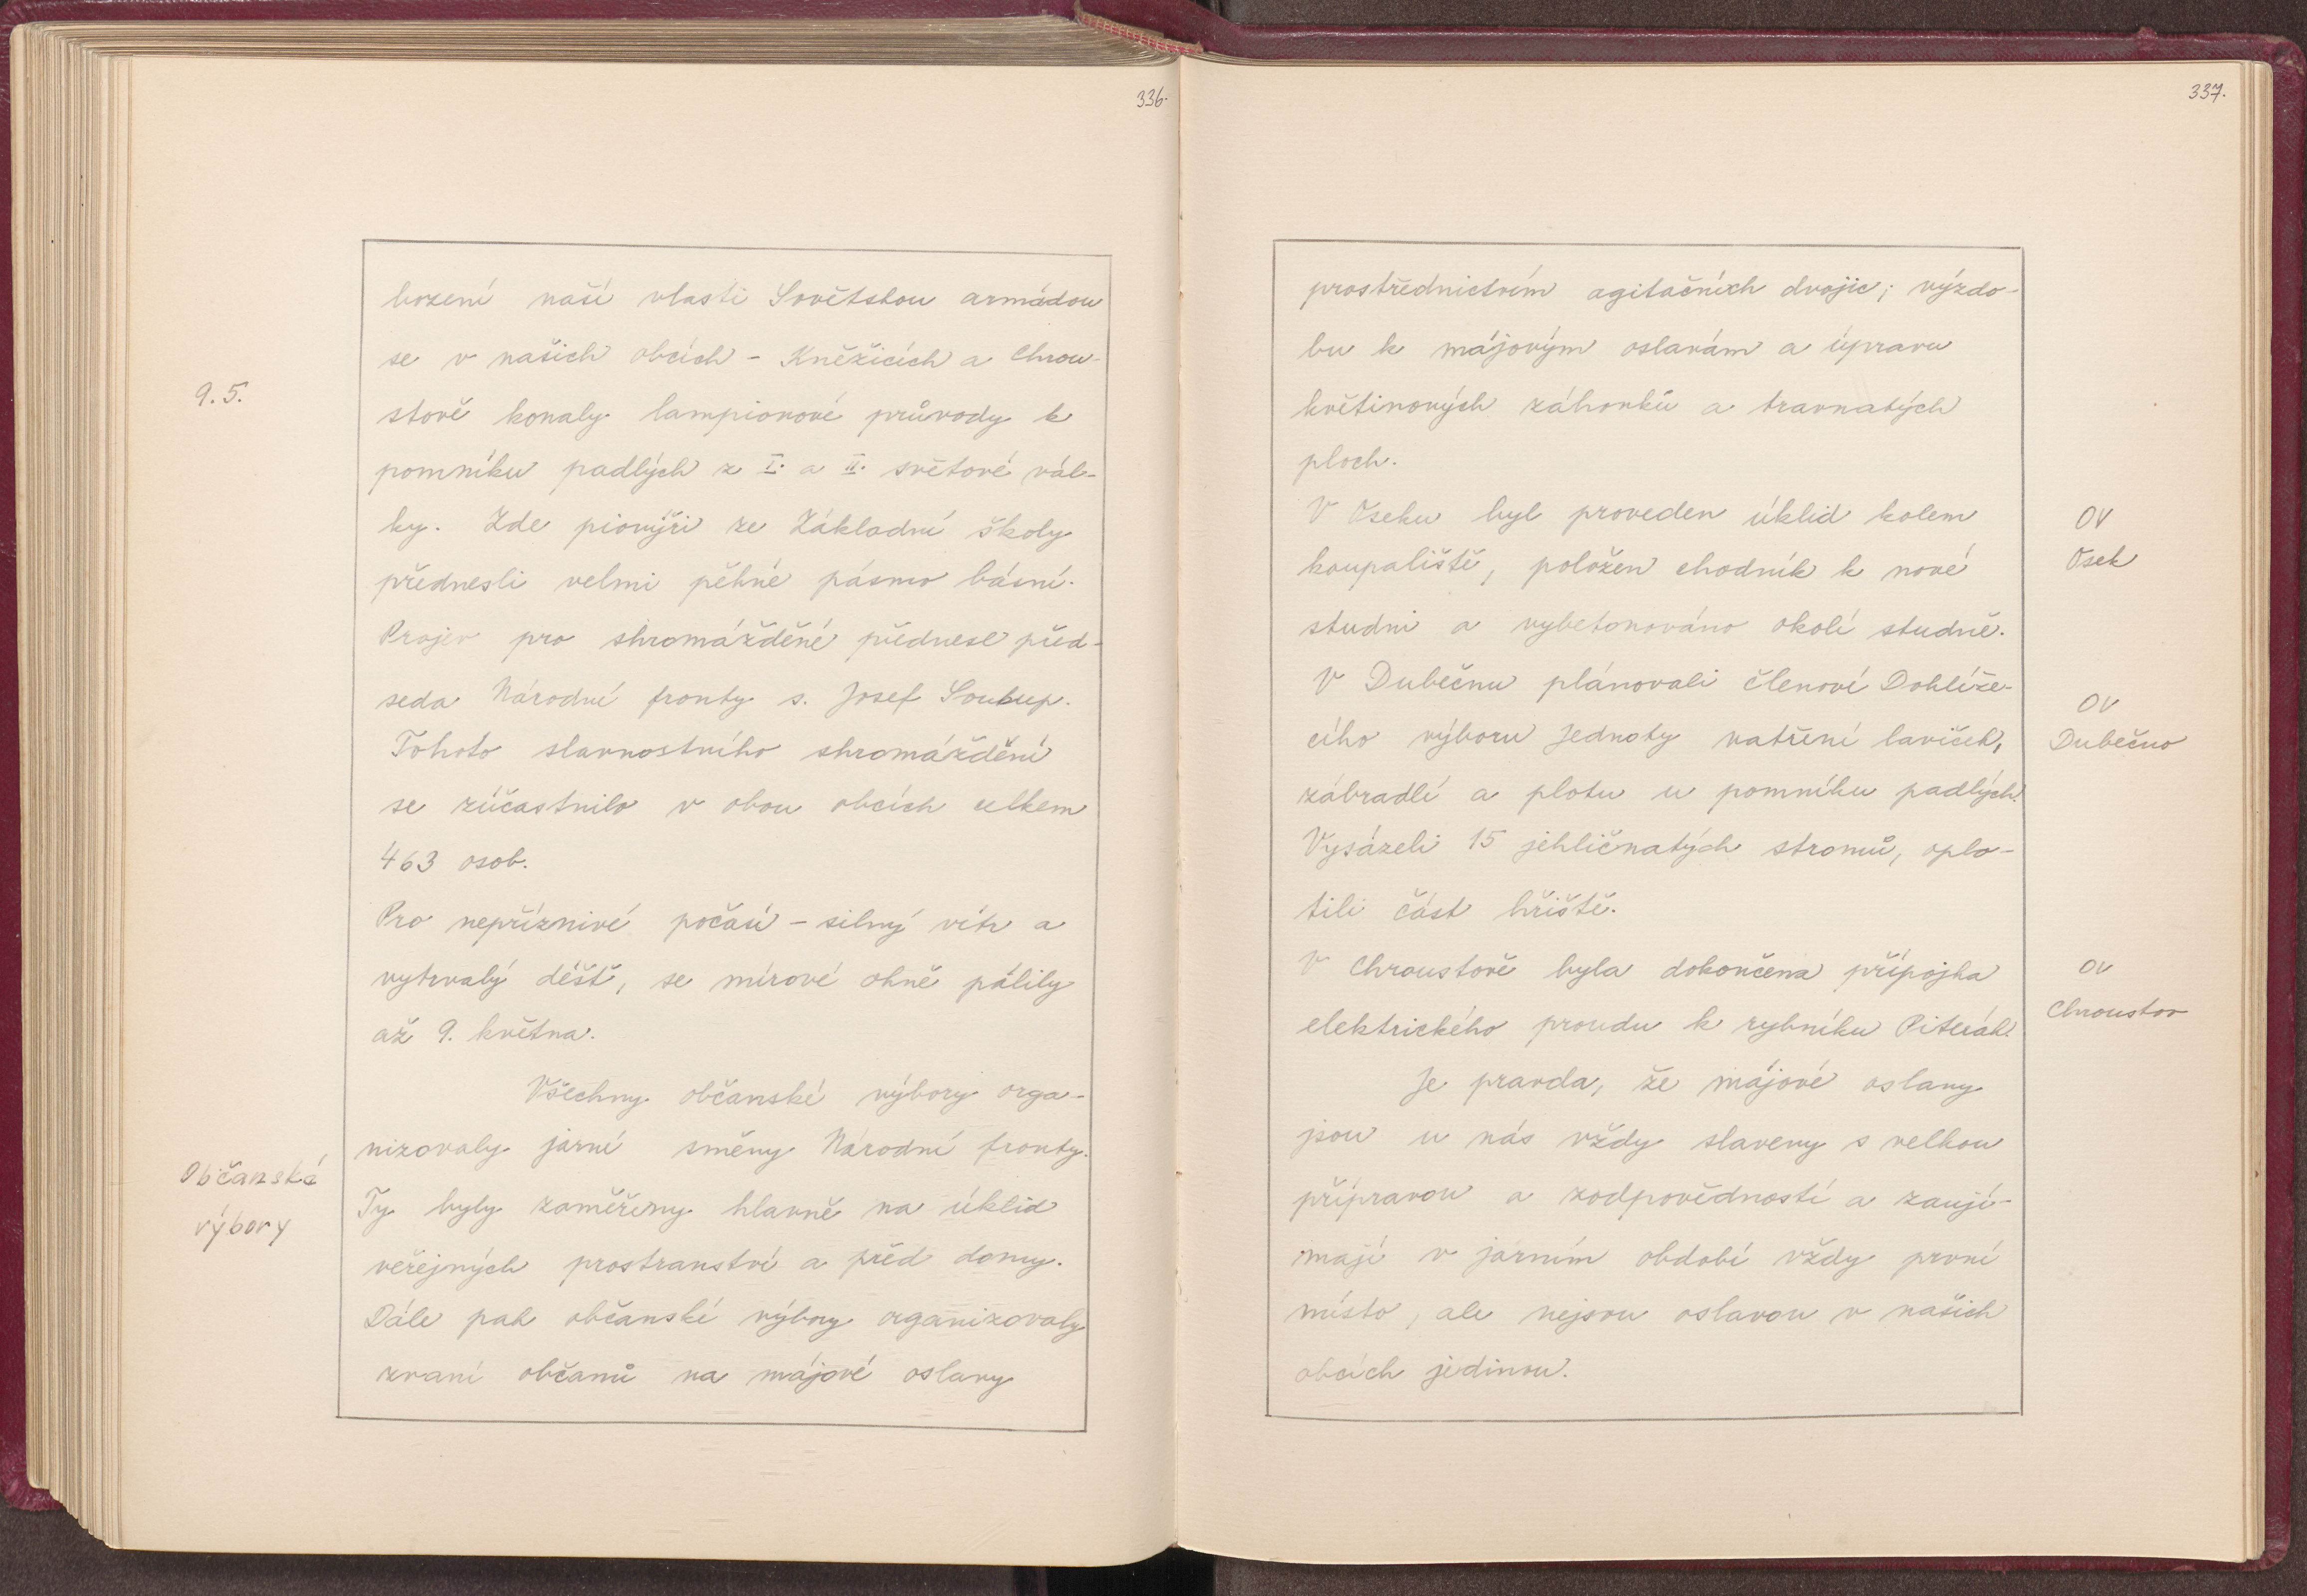 336.
bození naší vlasti Sovětskou armádou
se v našich obcích - Kněžicích a Chrou-
9.5.
stově konaly lampionové průvody k
pomníku padlých z I. a II. světové vál-
ky. Zde pionýři ze Základní školy
přednesli velmi pěkné pásmo básní.
Projev pro shromážděné přednesl před-
seda Národní fronty s. Josef Soukup.
Tohoto slavnostního shromáždění
se zúčastnilo v obou obcích celkem
463 osob.
Pro nepříznivé počasí - silný vítr a
vytrvalý déšť, se mírové ohně pálily
až 9. května.
Všechny občanské výbory orga-
nizovaly jarní směny Národní fronty.
Občanské
výbory
Ty byly zaměřeny hlavně na úklid
veřejných prostranství a před domy.
Dále pak občanské výbory organizovaly
zvaní občanů na májové oslavy
337.
prostřednictvím agitačních dvojic; výzdo-
bu k májovým oslavám a úpravu
květinových záhonků a travnatých
ploch.
V Oseku byl proveden úklid kolem
OV
Osek
koupaliště, položen chodník k nové
studni a vybetonováno okolí studně.
V Dubečnu plánovali členové Dohlíže-
OV
Dubečno
cího výboru Jednoty natření laviček,
zábradlí a plotu u pomníku padlých.
Vysázeli 15 jehličnatých stromů, oplo-
tili část hřiště.
V Chroustově byla dokončena přípojka
OV
Chroustov
elektrického proudu k rybníku Piterák.
Je pravda, že májové oslavy
jsou u nás vždy slaveny s velkou
přípravou a zodpovědností a zaují-
mají v jarním období vždy první
místo, ale nejsou oslavou v našich
obcích jedinou.